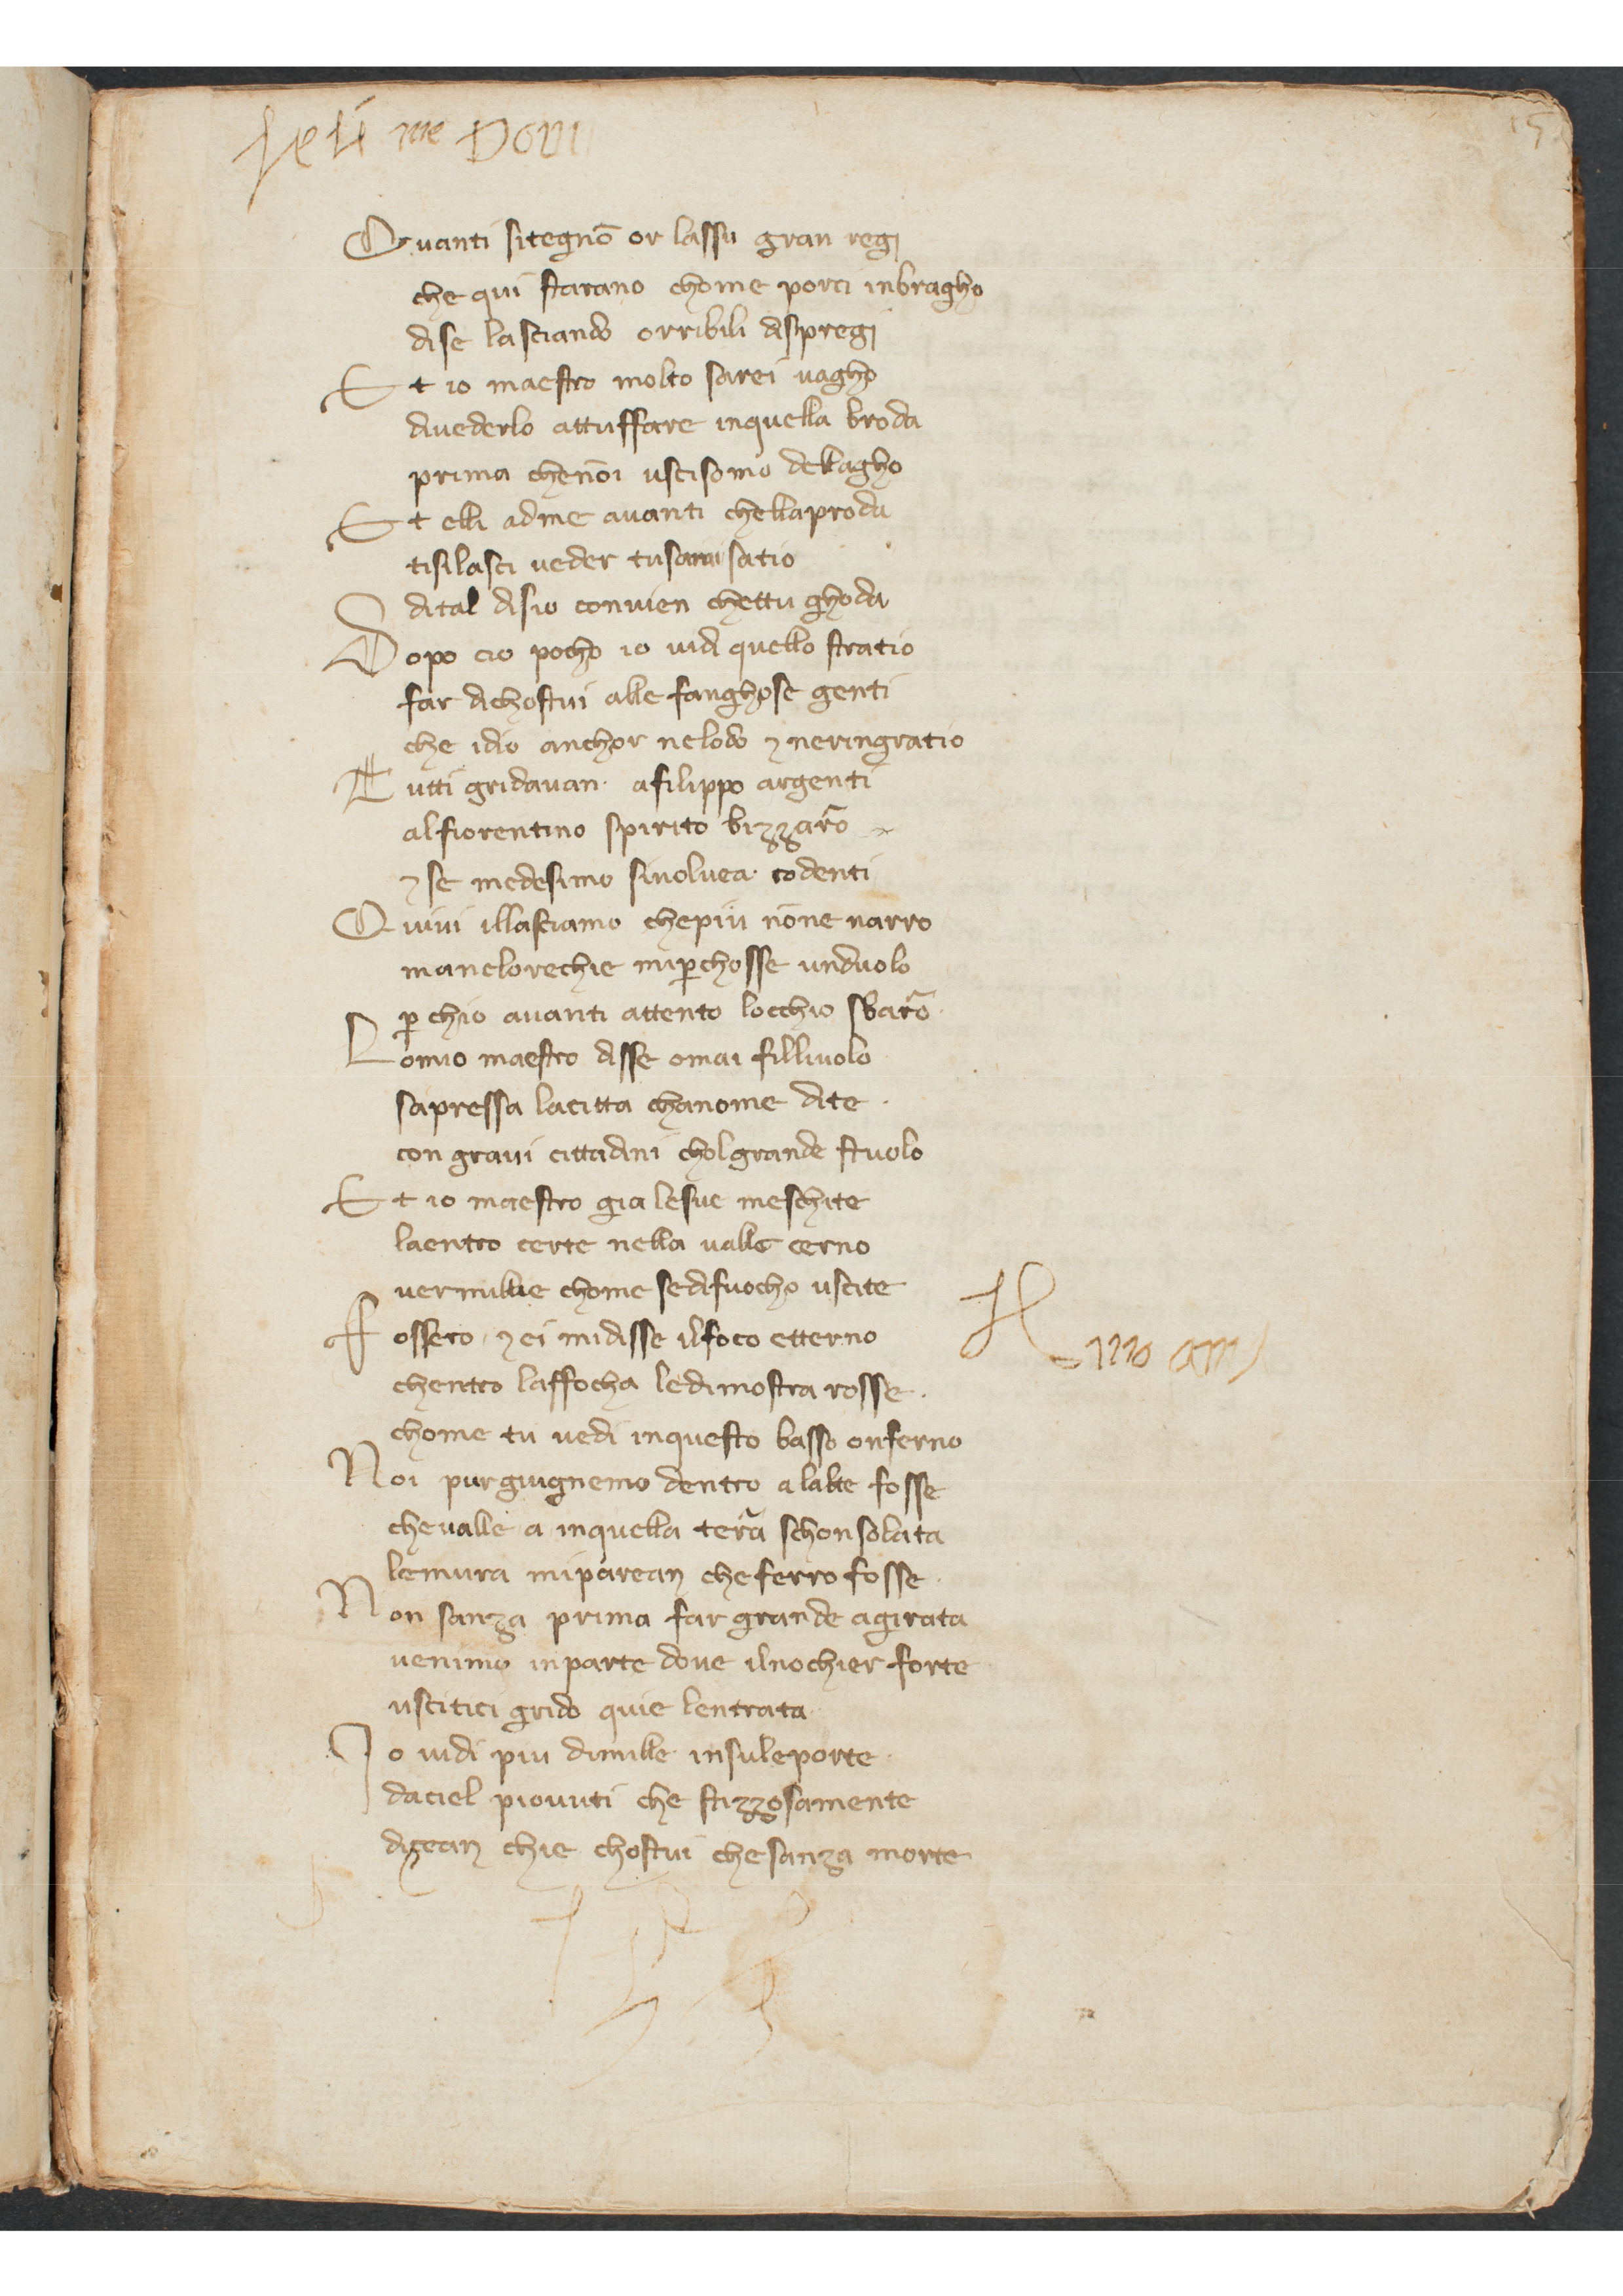 Quanti sitegnō or lassu gran regi
che qui starano chome porci inbragho
dise lasciando orribili dispregi
Et io maestro molto sarei vagho
divederlo attuffare inquella broda
prima chenoi uscisomo dellagho
Et elli adme avanti chellaproda
tisilasci veder tusarai satio
dital disio convien chettu ghoda
Dopo cio pocho io vidi quello stratio
far dichostui alle fanghose genti
che idio anchor nelodo ⁊ neringratio
Tutti gridavan· afilippo argenti
alfiorentino spirito bizzarō
⁊ se medesimo sivolvea· codenti
Quivi illasciamo chepiu nōne narro
manelorechie miꝑchosse unduolo
ꝑ chio avanti attento locchio sbarō·
Lomio maestro disse omai fillivolo
sapressa lacitta chanome dite·
con gravi cittadini cholgrande stuolo
Et io maestro gia lesue meschite
laentro certe nella valle cerno
vermillie chome sedifuocho uscite
Fossero ⁊ ei midisse ilfoco etterno
chentro laffocha ledimostra rosse·
chome tu vedi inquesto basso onferno
Noi pur giugnemo dentro a lalte fosse
chevalle a inquella terā schonsolata
lemura miparean che ferro fosse·
Non sanza prima far grande agirata
venimo inparte dove ilnochier forte
uscitici grido quie lentrata
Io vidi piu dimille insuleporte·
daciel piovuti che stizzosamente
dicean chie chostui chesanza morte